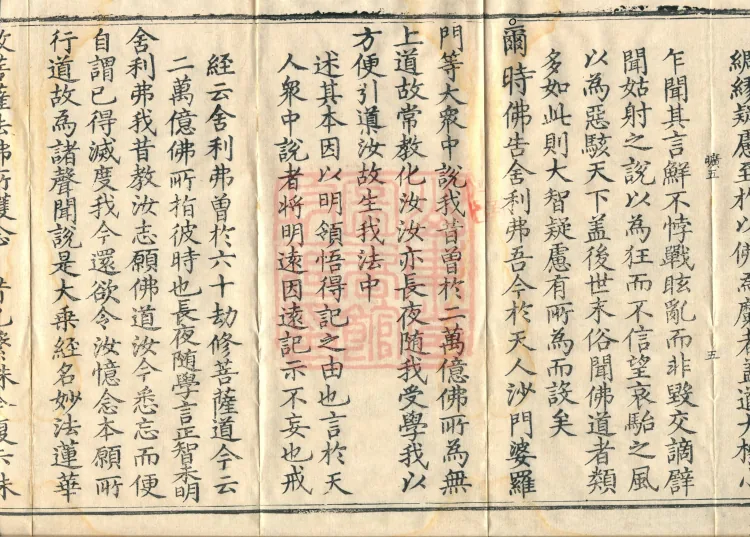 綢繆疑慮至於以佛為魔者蓋道大機小
乍聞其言鮮不悖戰眩亂而非毀交謫譬
聞姑射之說以為狂而不信望哀駘之風
以為惡駭天下盖後世末俗聞佛道者類
多如此則大智疑慮有所為而設矣
爾時佛告舍利弗吾今於天人沙門婆羅
門等大衆中說我昔曽於二萬億佛所為無
上道故常教化汝汝亦長夜隨我受學我以
方便引導汝故生我法中
述其本因以明領悟得記之由也言於天
人衆中説者将明遠因遠記示不妄也戒
經云舍利弗曽於六十劫修菩薩道今云
二萬億佛所指彼時也長夜随學言正智未明
舍利弗我昔教汝志願佛道汝今悉忘而便
自謂已得滅度我今還欲令汝憶念本願所
行道故為諸聲聞説是大乗經名妙法蓮華
教菩薩法佛所護念
曠五
五